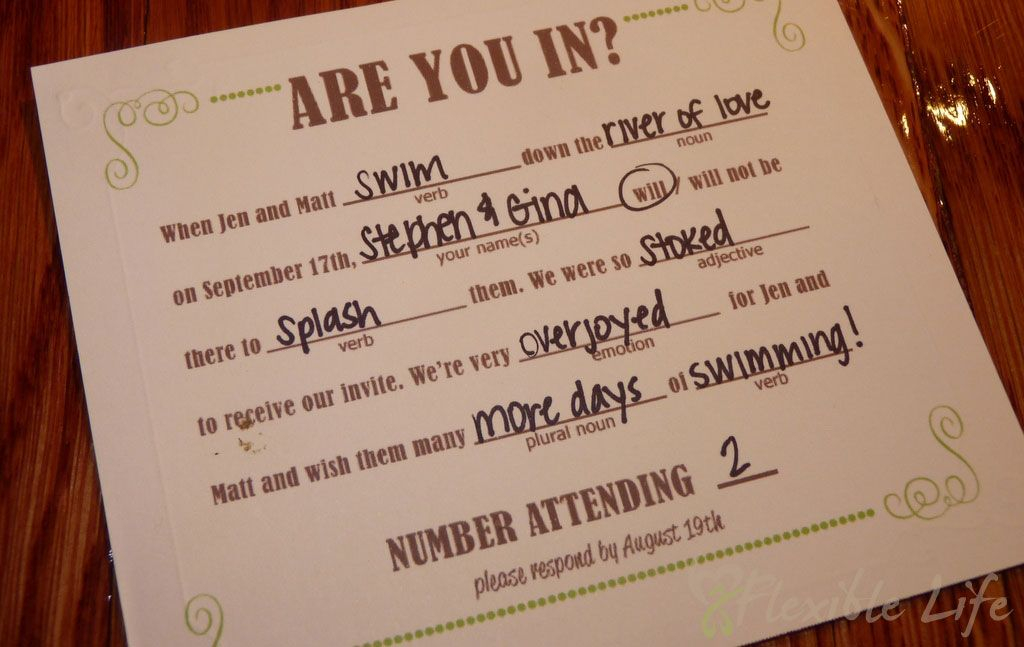 ARE YOU IN?
When Jen and Matt swim down the river of love
verb noun
on September 17th, Stephen & Gina will / will not be
your name(s)
there to splash them. We were so stoked
verb adjective
to receive our invite. We're very overjoyed for Jen and
emotion
Matt and wish them many more days of swimming!
plural noun verb
NUMBER ATTENDING 2
please respond by August 19th
Flexible Life